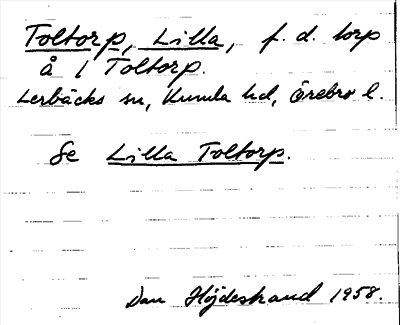 Toltorp, Lilla, f. d. torp
å 1 Toltorp.
Lerbäcks sn, Kumla hd, Örebro l.
Se Lilla Toltorp.
Dan Höjdestrand 1958.